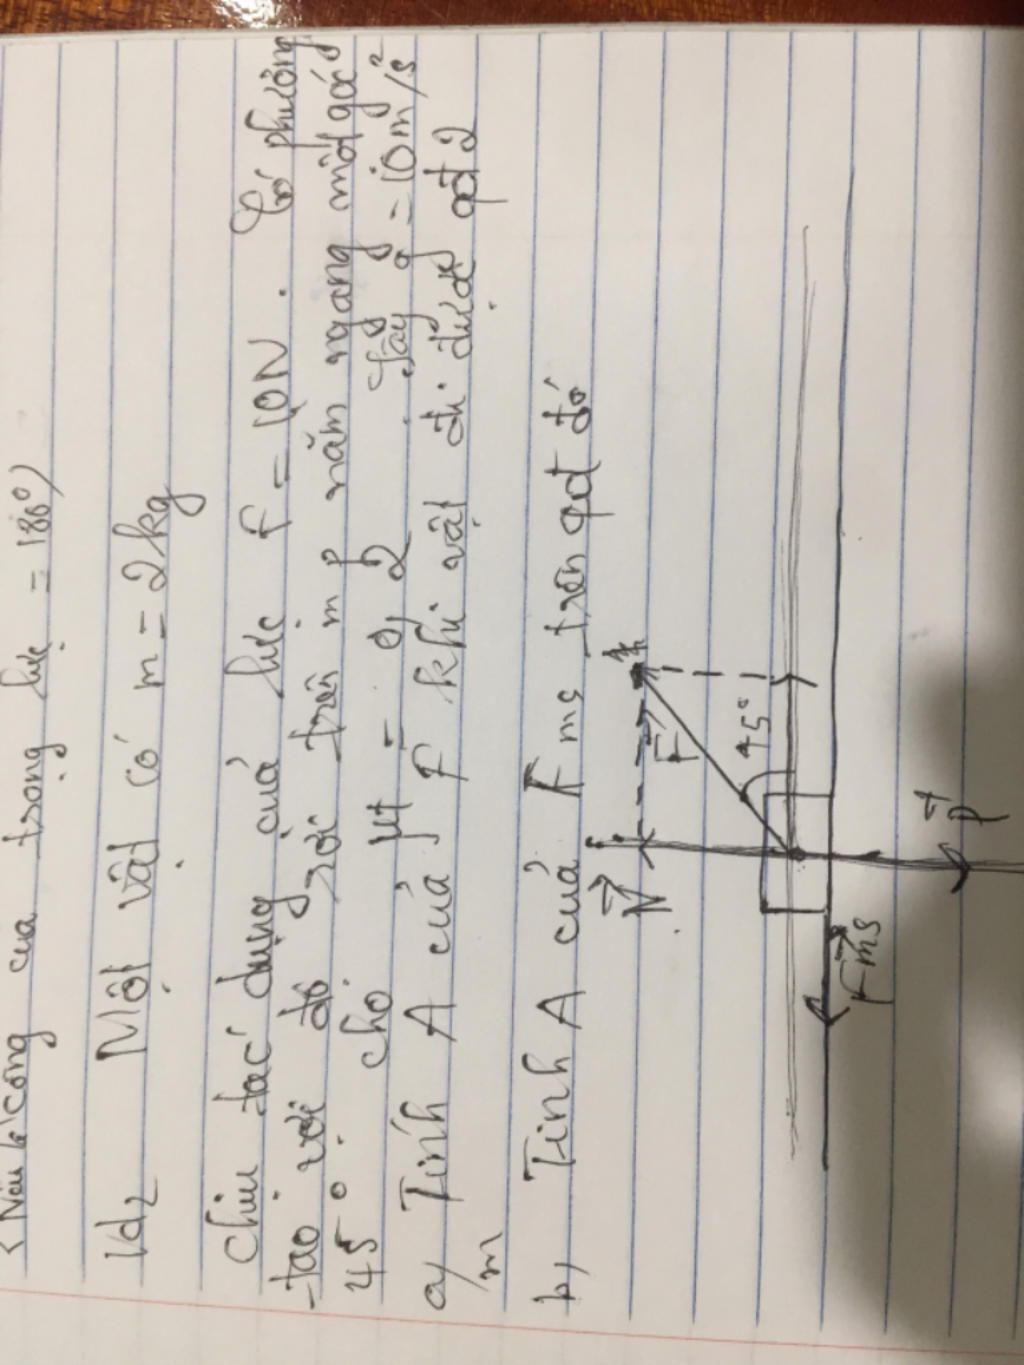 ( Nếu k° công của trọng lực = 180°)
Vd2 Một vật có m = 2kg
Chịu tác dụng của lực F = 10N. Có phương
tạo với độ rời trên mp nằm ngang một góc
45°. cho μt = 0,2. Lấy g = 10m/s²
a) Tính A của F khi vật đi được qđ 2
m
b) Tính A của Fms trên qđ đó
N
F
45°
Fms
P